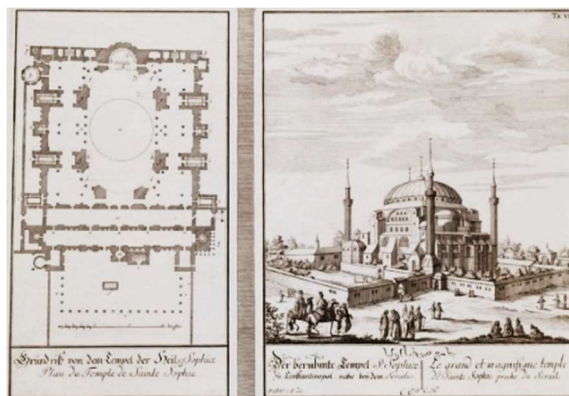 Grundriß von dem Tempel der Heil. Sophiæ
Plan du Temple de Sainte Sophie
Der berühmte Tempel S. Sophiæ
in Constantinopel nahe bey dem Serail
Le grand et magnifique temple
de Sainte Sophie proche du Serail